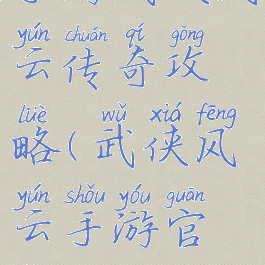 yún chuán qí gōng
云传奇攻
lüè wǔ xiá fēng
略(武侠风
yún shǒu yóu guān
云手游官